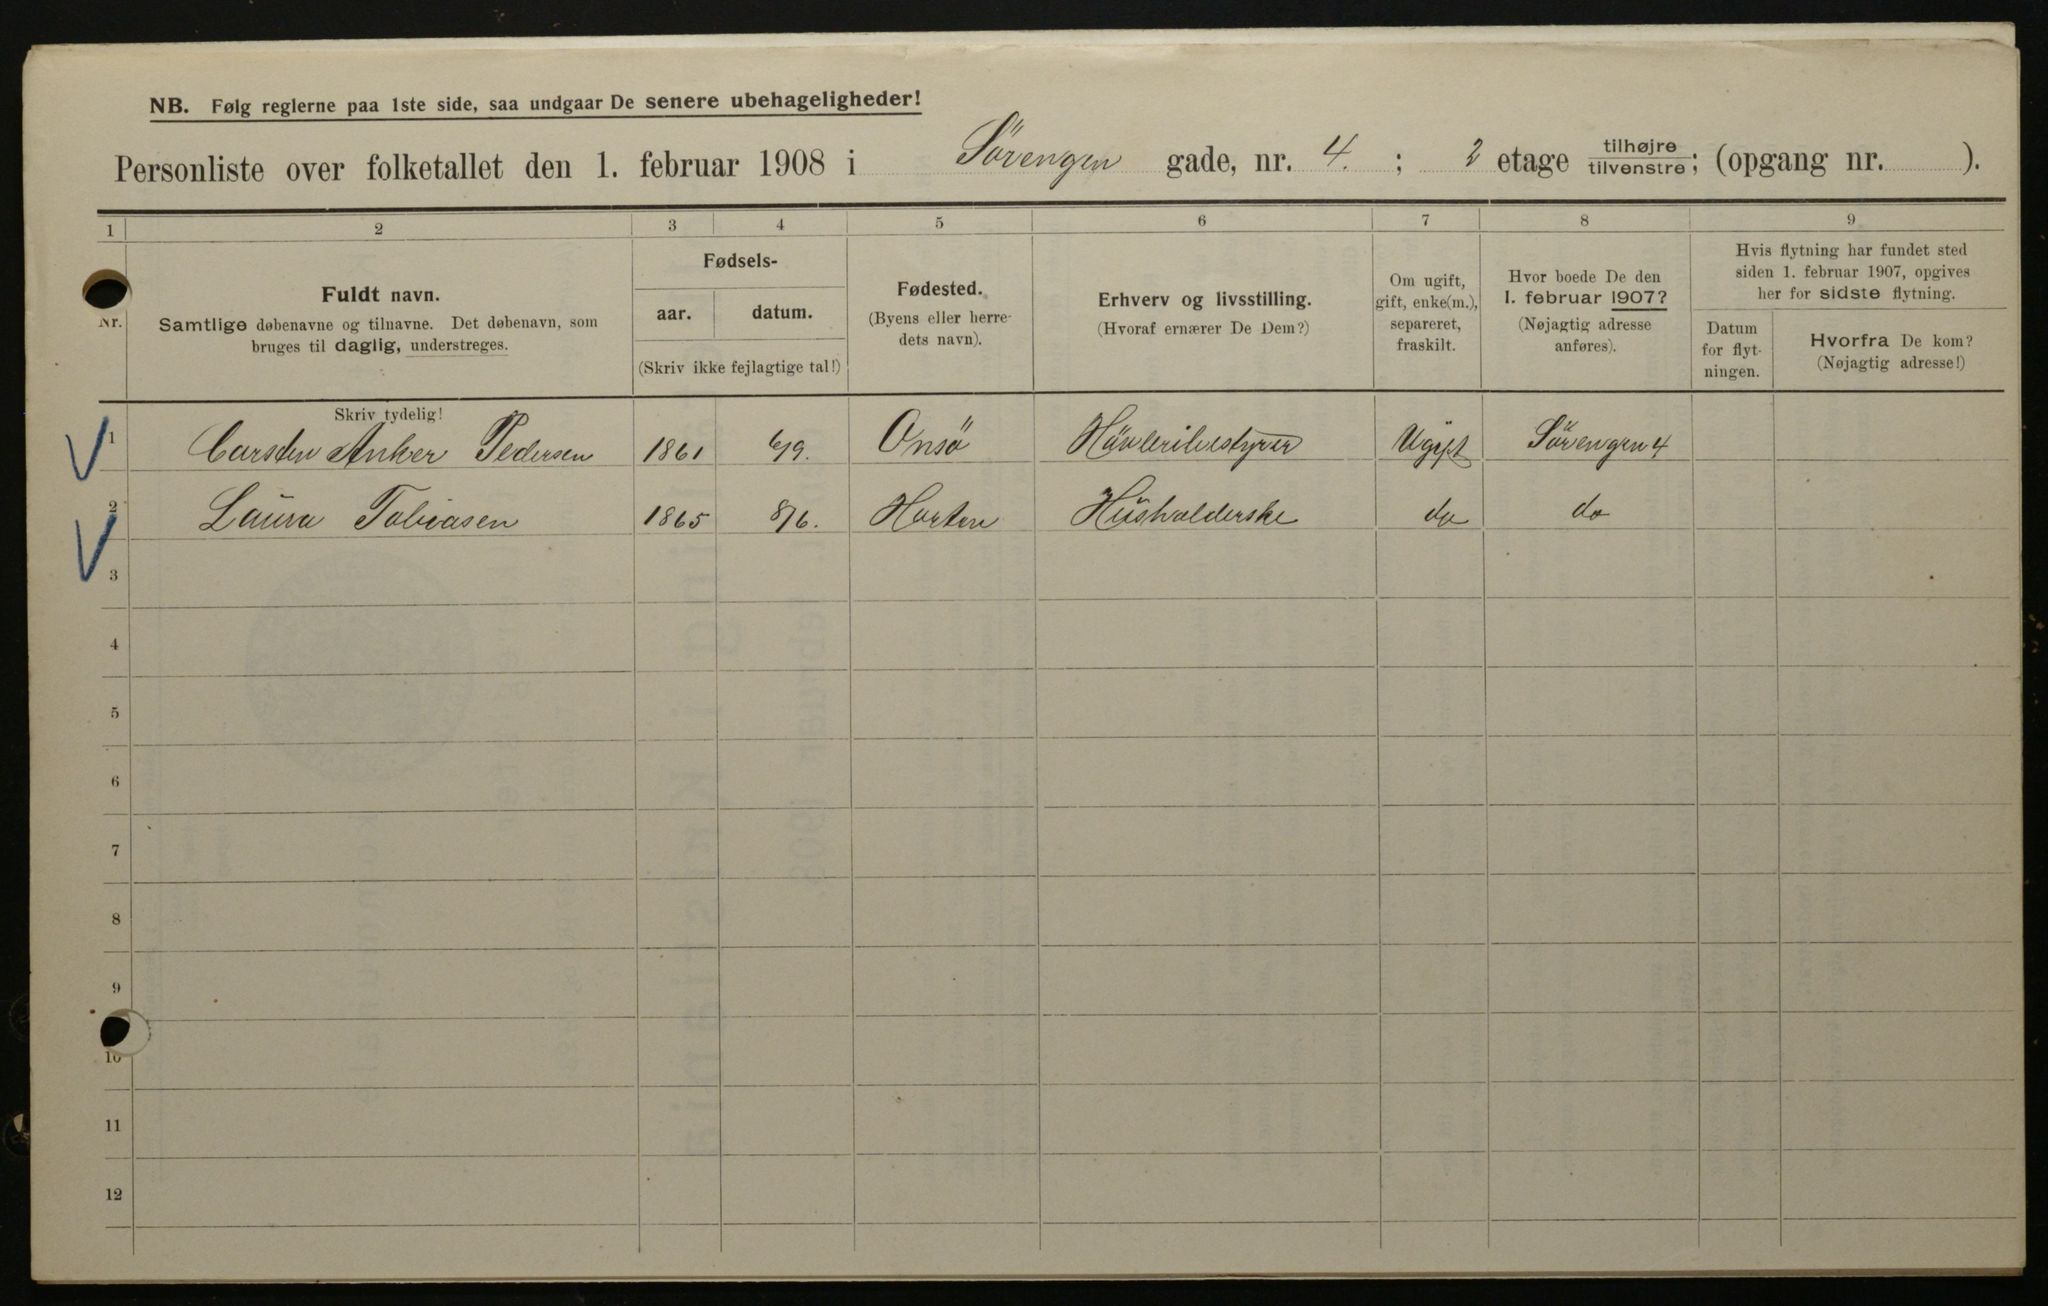 NB. Følg reglerne paa 1ste side, saa undgaar De senere ubehageligheder!
Personliste over folketallet den 1. februar 1908 i Sörengen gade, nr. 4. ; 2 etage tilhøjre tilvenstre; (opgang nr. ).
1 2 3 4 5 6 7 8 9
Nr.
Fuldt navn.
Samtlige døbenavne og tilnavne. Det døbenavn, som
bruges til daglig, understreges.
Fødsels-
aar. datum.
(Skriv ikke fejlagtige tal!)
Fødested.
(Byens eller herre-
dets navn).
Erhverv og livsstilling.
(Hvoraf ernærer De Dem?)
Om ugift,
gift, enke(m.),
separeret,
fraskilt.
Hvor boede De den
1. februar 1907?
(Nøjagtig adresse
anføres).
Hvis flytning har fundet sted
siden 1. februar 1907, opgives
her for sidste flytning.
Datum
for flyt-
ningen.
Hvorfra De kom?
(Nøjagtig adresse!)
Skriv tydelig!
1 Carsten Anker Pedersen 1861 6/9. Onsö Hövleribestyrer Ugift Sörengen 4
2 Laura Tobiasen 1865 8/6. Horten Husholderske do do
3
4
5
6
7
8
9
10
11
12